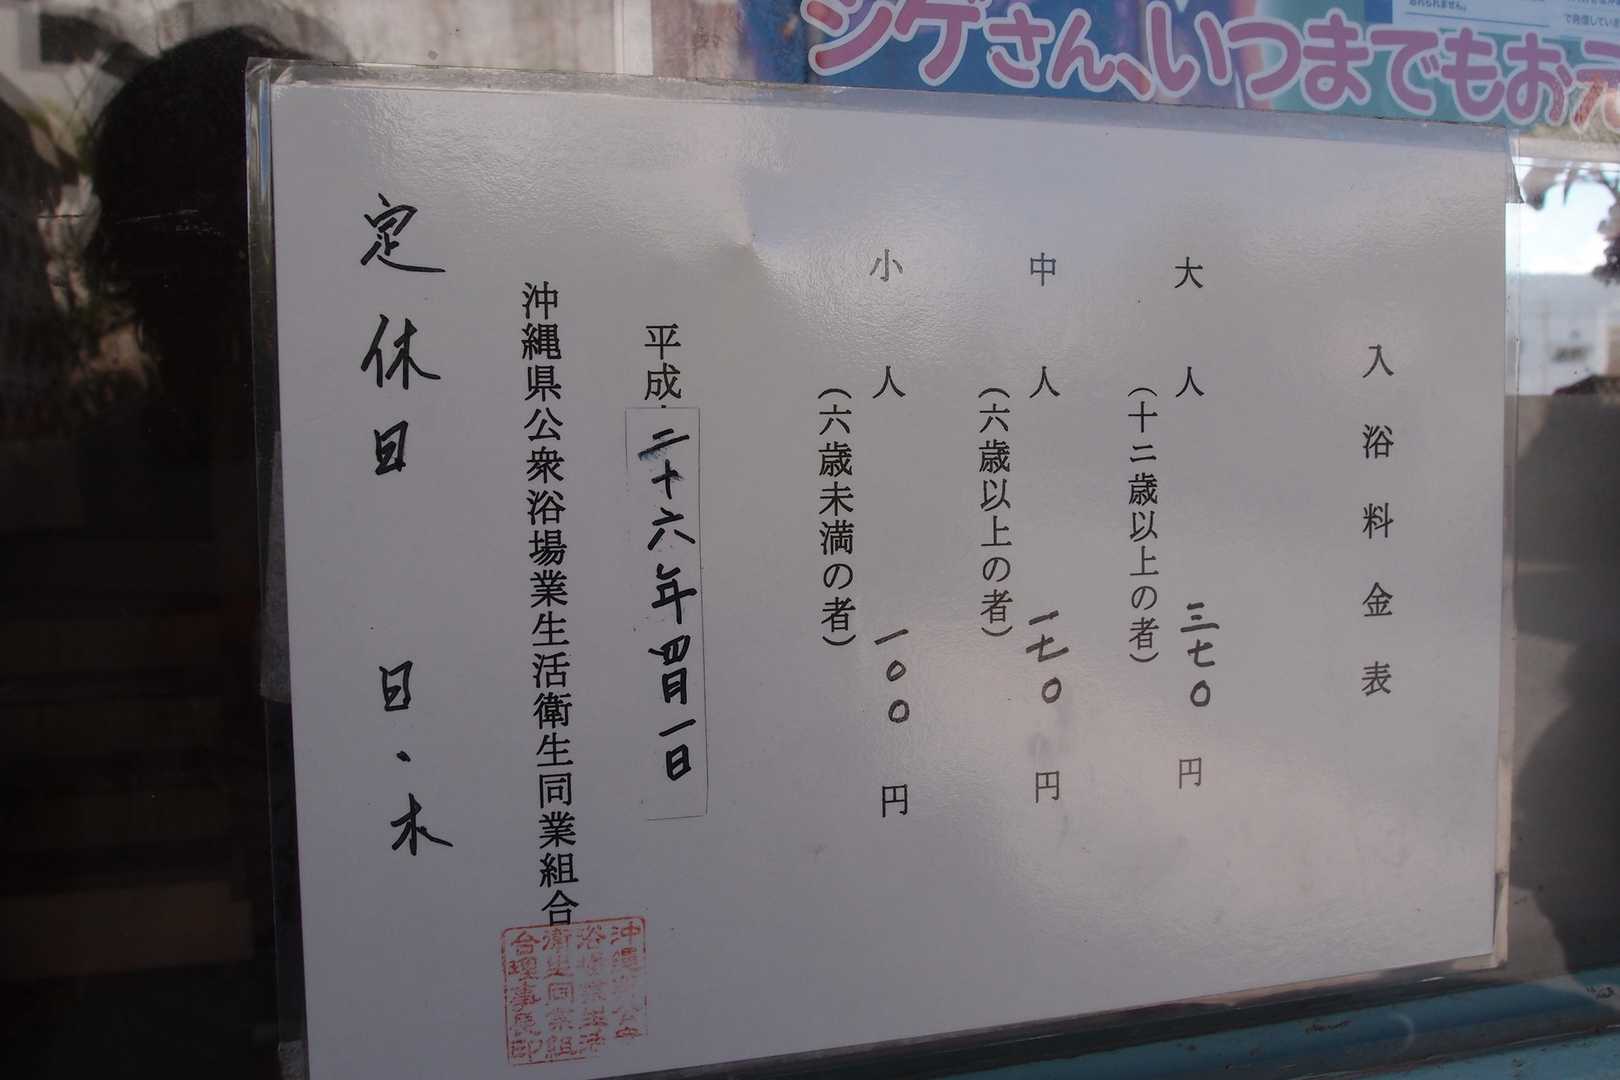 シゲさん、いつまでもお元
入浴料金表
大人 三七〇 円
（十二歳以上の者）
中人 一七〇 円
（六歳以上の者）
小人 一〇〇 円
（六歳未満の者）
平成二十六年四月一日
沖縄県公衆浴場業生活衛生同業組合
定休日 日・木
沖縄県公衆
浴場業生活
衛生同業組
合理事長印